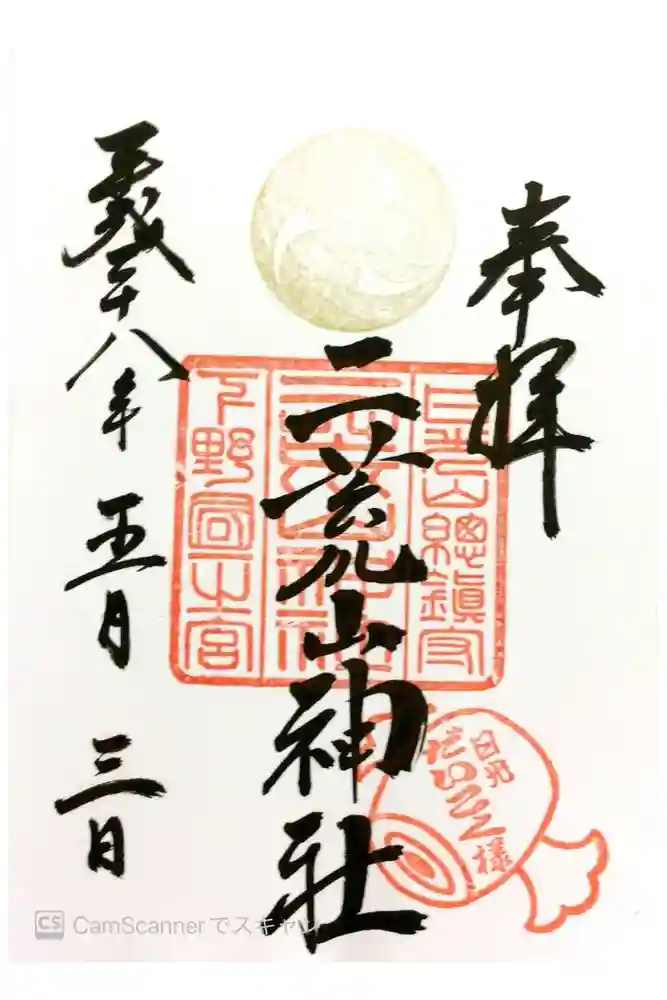 奉拝
日光山總鎮守
二荒山神社
二荒山神社
下野國一之宮
平成二十八年五月三日
日光
だいこく様
CS CamScannerでスキャン